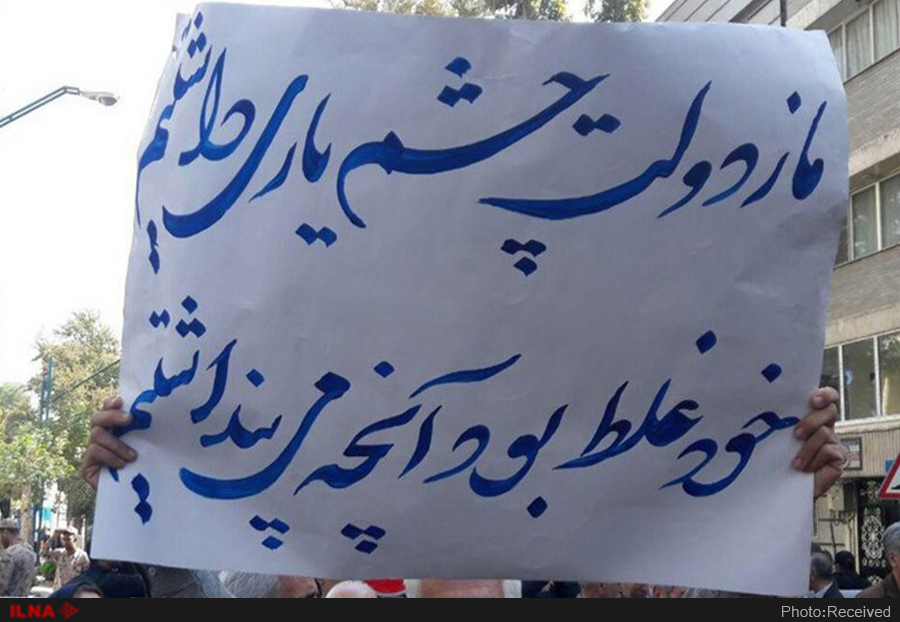 ما ز دولت چشم یاری داشتیم
خود غلط بود آنچه می پنداشتیم
ILNA
Photo:Received